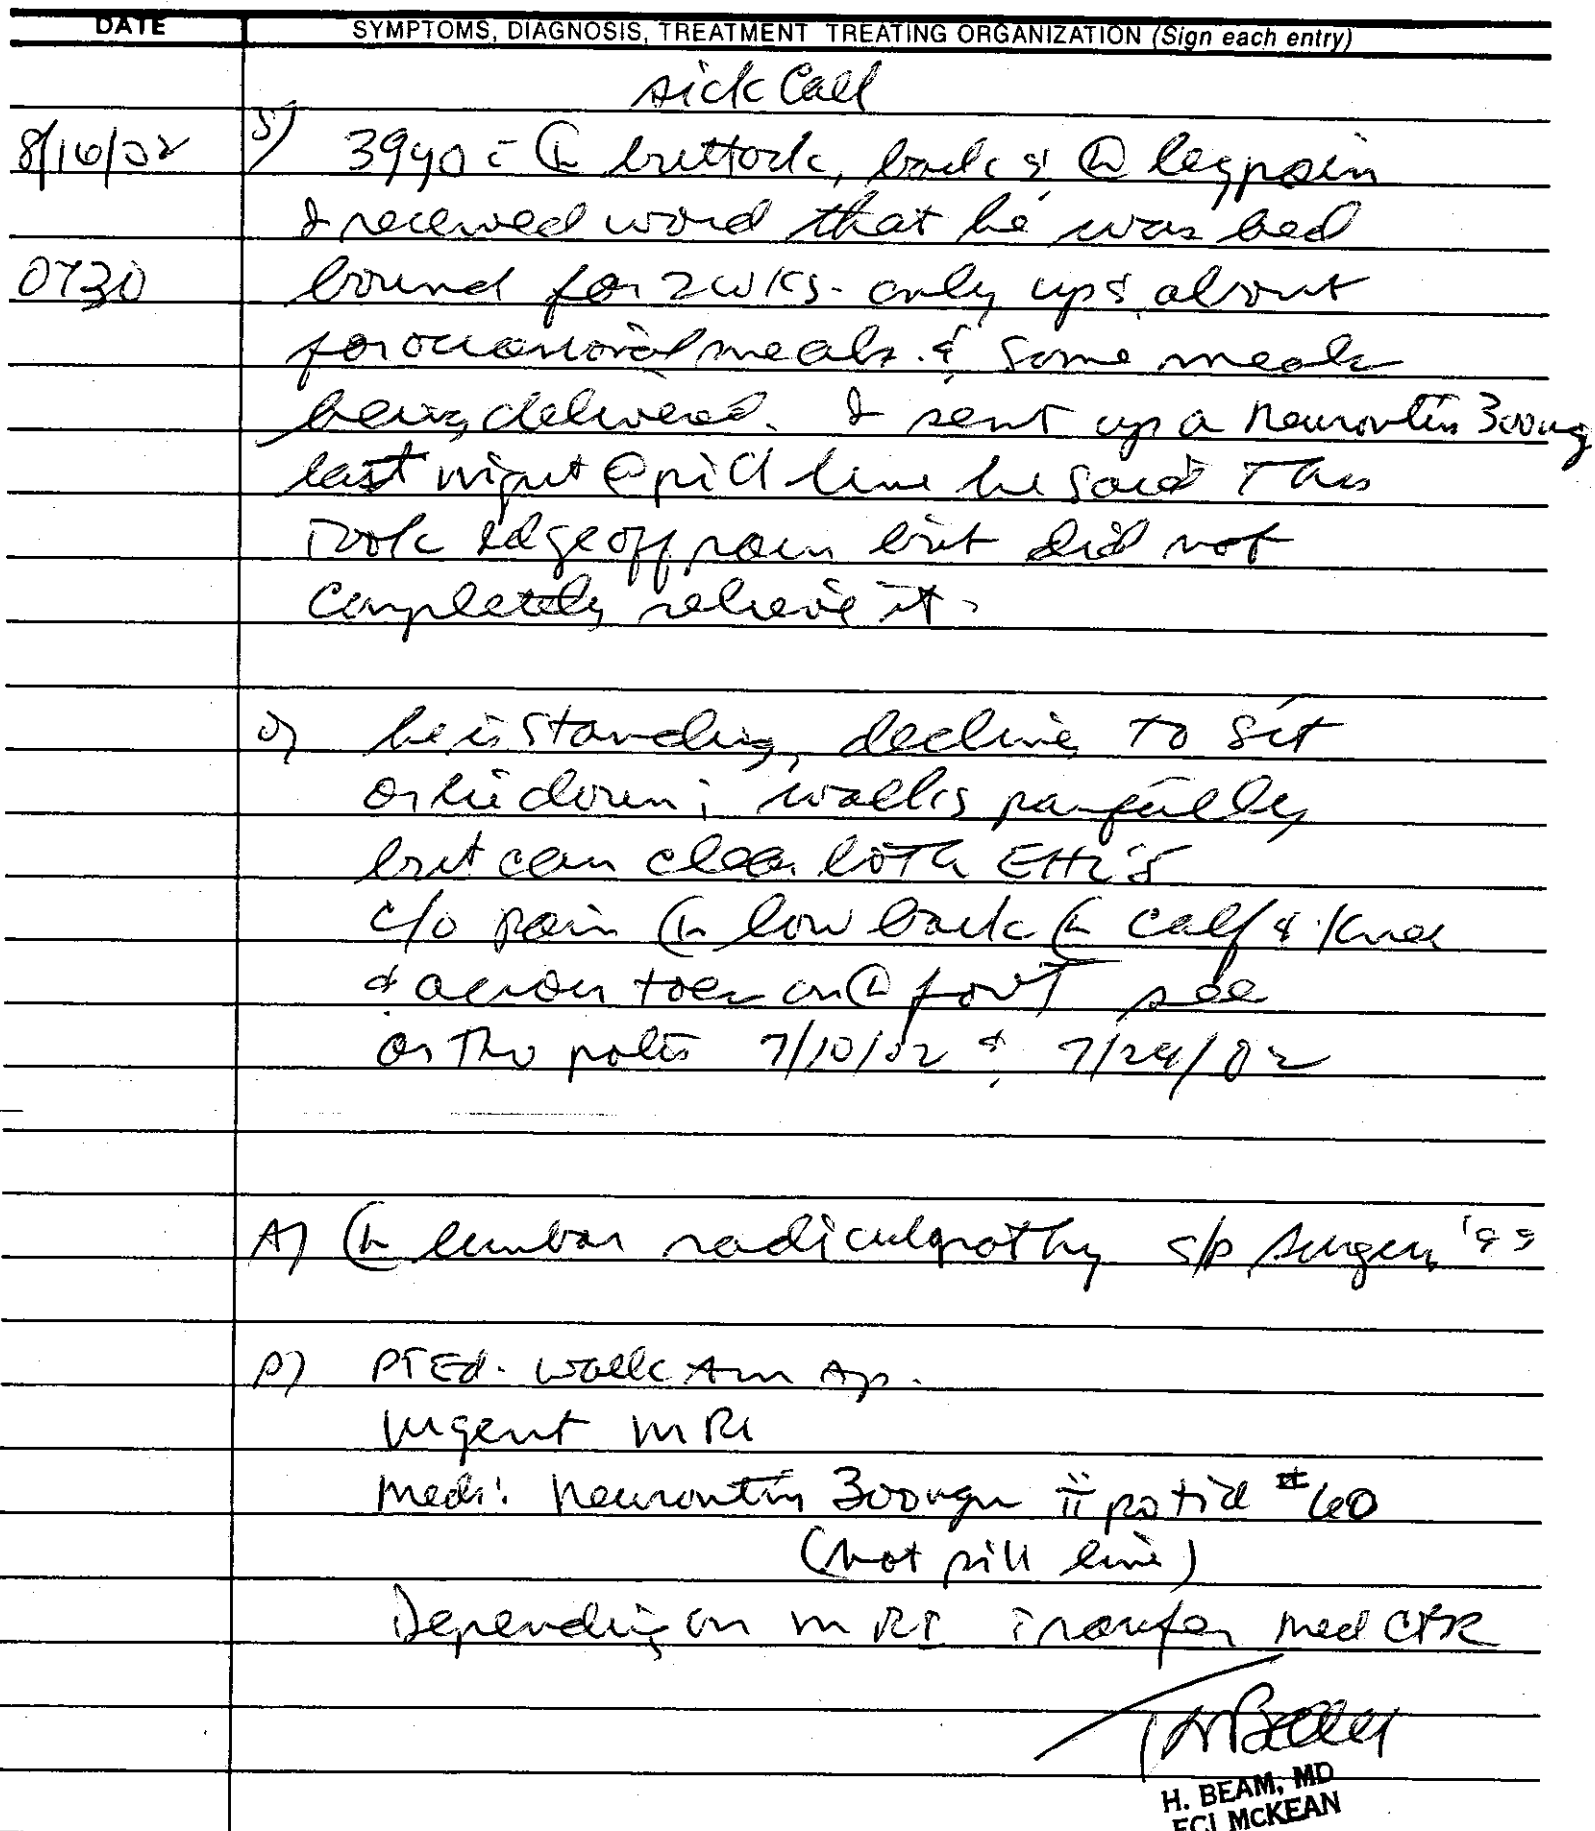 DATE SYMPTOMS, DIAGNOSIS, TREATMENT TREATING ORGANIZATION (Sign each entry)
sick Call
8/16/02 S) 39yo c̄ Ⓛ buttock, back & Ⓛ leg pain
I received word that he was bed
0730 bound for 2 wks - only up & about
for occasional meals & some meals
being delivered. I sent up a Neurontin 300mg
last night @ pill line he said this
took edge off pain but did not
completely relieve it.
O) he is standing, decline to sit
or lie down; walks painfully
but can clear both EHL's
c/o pain Ⓛ low back Ⓛ calf & knee
& across toes on Ⓛ foot see
ortho notes 7/10/02 & 7/24/02
A) Ⓛ lumbar radiculopathy s/p surgery '99
P) PT Ed. walk
urgent MRI
meds: Neurontin 300mgm ii po tid #60
(not pill line)
Depending on MRI transfer med CTR
H. BEAM, MD
FCI MCKEAN